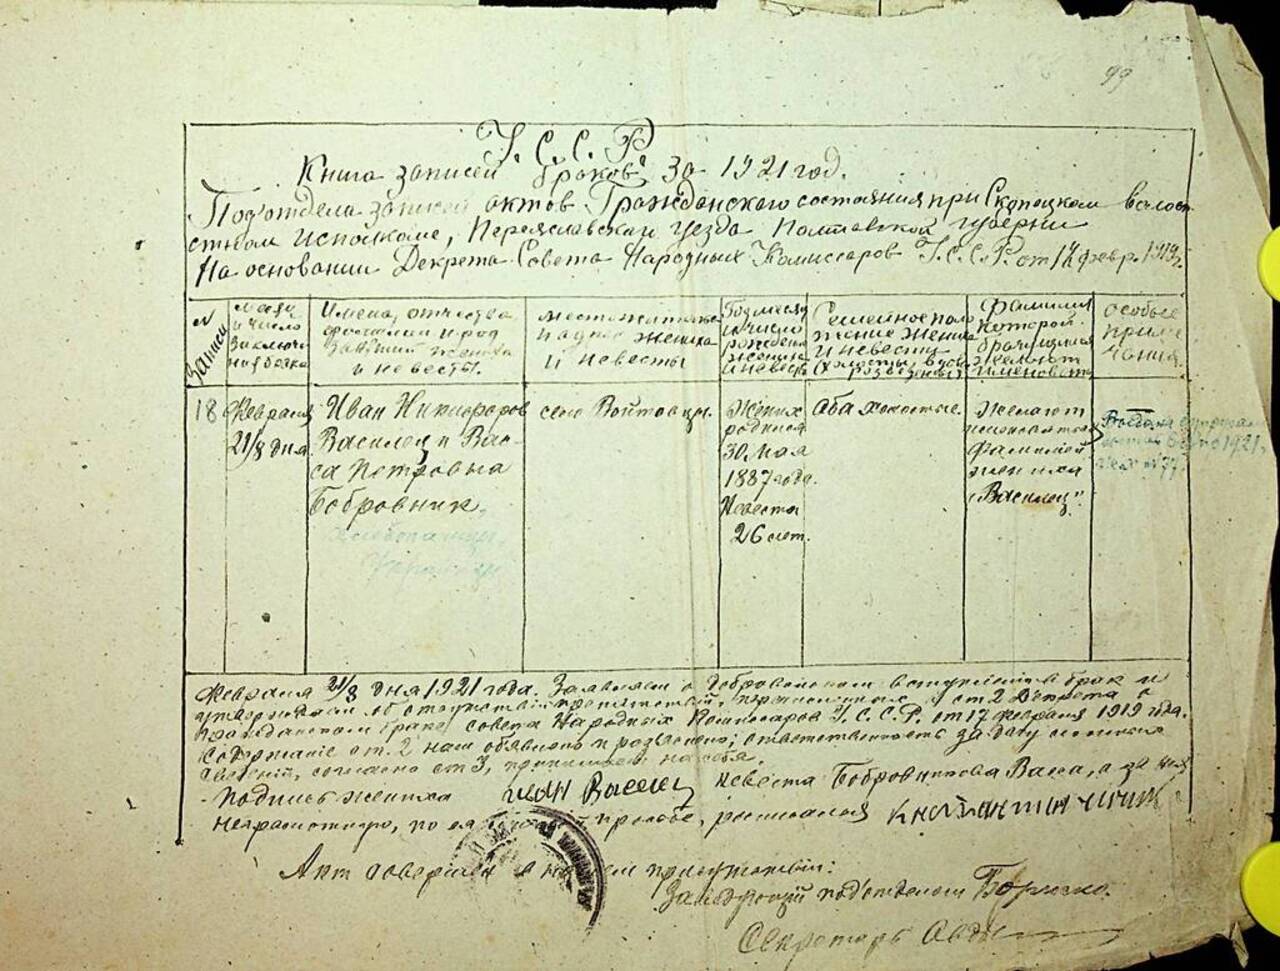 99
У. С. С. Р.
Книга записей браков за 1921 год.
Подотдела записей актов Гражданского состояния при Скопецком волост
стном исполкоме, Переяславскаго уезда Полтавской губернии
На основании Декрета Совета Народных Комиссаров У.С.С.Р. от 17 февр. 1919 г.
№ записи
месяц и число заключения брака
Имена, отчества фамилии и род занятий жениха и невесты.
местожительство и адрес жениха и невесты
Год месяц и число рождения жениха и невесты
Семейное положение жениха и невесты (холосты, вдов. разведенный
Фамилия которой брачущиеся желают именоваться
особые примечания.
18
Февраля
21/8 дня
Иван Никифоров
Василец и Вас-
са Петровна
Бобровник.
хлебопашцы.
село Войтовцы.
Жених
родился
30 мая
1887 года.
Невеста
26 лет.
Оба холостые.
Желают
именоваться
фамилией
жениха
"Василец".
1921
Февраля 21/8 дня 1921 года. Заявляем о добровольном вступлении в брак и
утверждаем об отсутствии препятствий, перечисленных в ст 2 Декрета о
гражданском браке совета Народных Комиссаров У.С.С.Р. от 17 февраля 1919 года.
Содержание ст. 2 нам обявлено и розъяснено; ответственность за дачу ложных
сведений, согласно ст 3, принимаем на себя.
Подпись жениха Иван Василец невеста Бобровникова Васса, а за нея
неграмотную, по ея просьбе, росписался
Акт совершен в моем присутствии:
Заведующий под'отделом
Секретарь